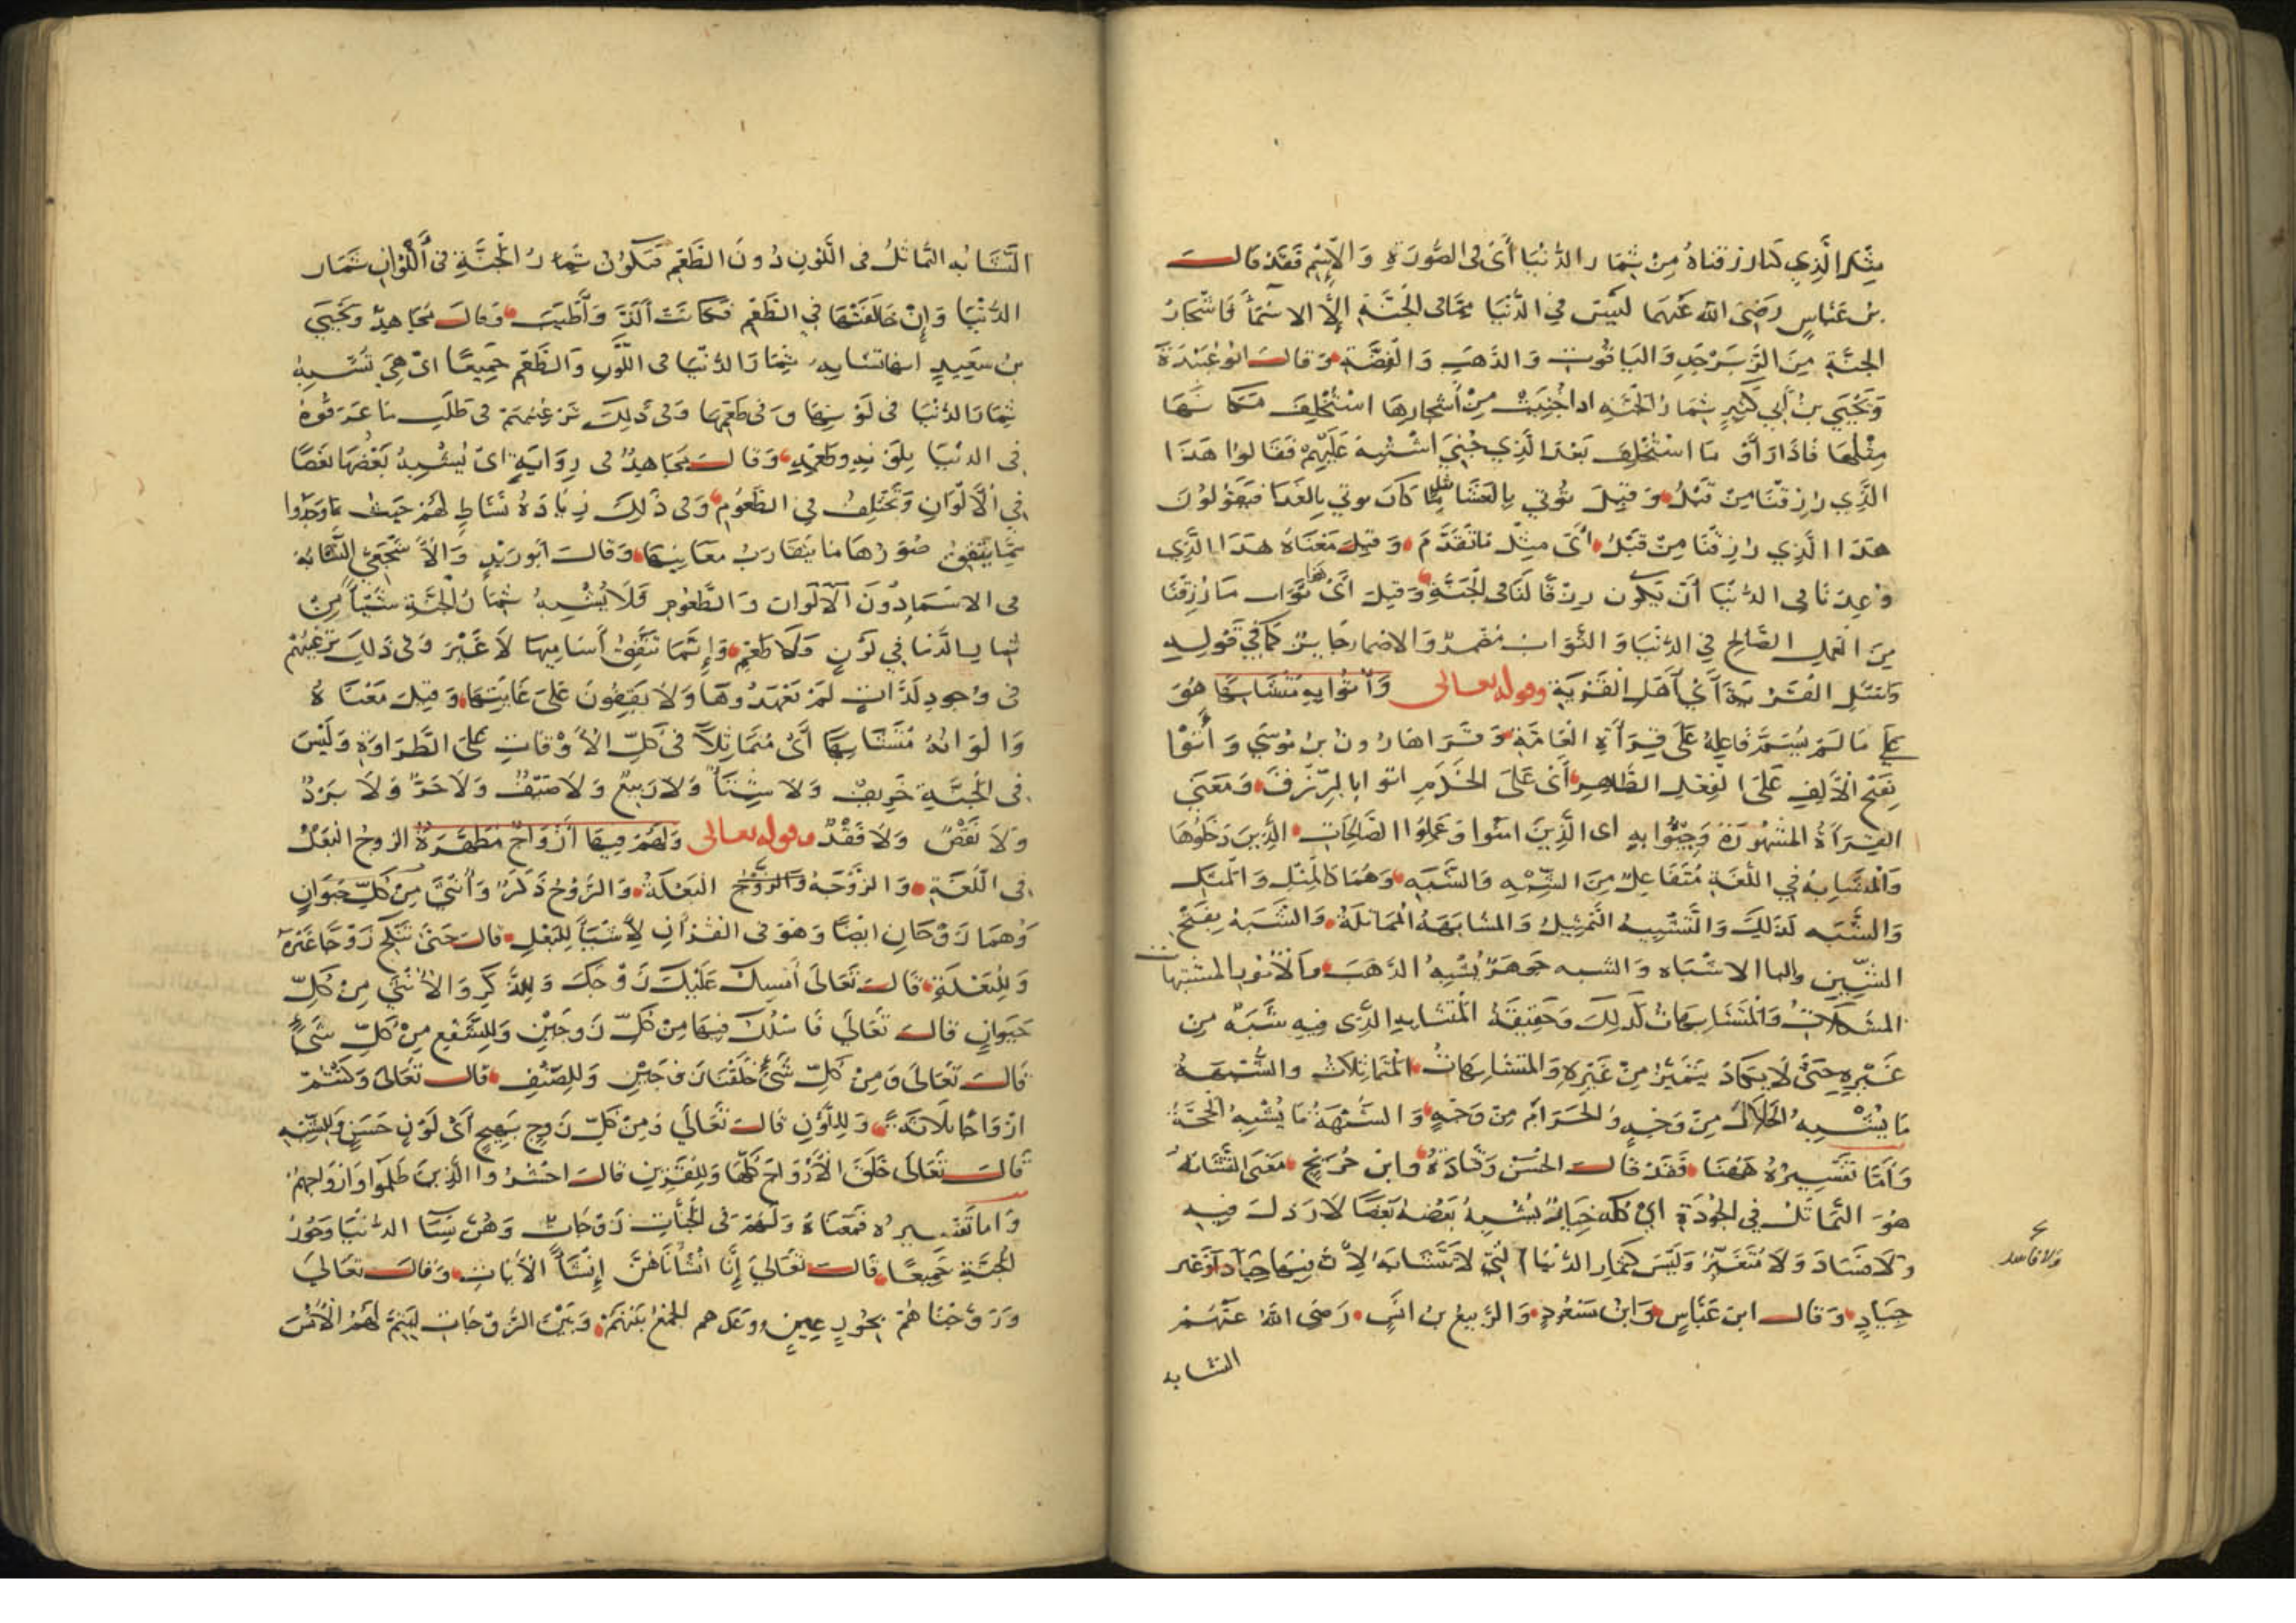 مثل الذي كنا رزقناه من ثمار الدنيا أي في الصورة والاسم فقد قال
بن عباس رضي الله عنهما ليس في الدنيا مما في الجنة إلا الاسما فأشجار
الجنة من الزبرجد والياقوت والذهب والفضة وقال ابو عبيدة
ويحيى بن أبي كثير ثمار الجنة اذا جنيت من أشجارها استخلف مكانها
مثلها فاذا رأو ما استخلف بعد الذي جني اشتبه عليهم فقالوا هذا
الذي رزقنا من قبل وقيل تؤتي بالعشا مثل ما كان يوتي بالغدا فيقولون
هذا الذي رزقنا من قبل أي مثل ما تقدم وقيل معناه هذا الذي
وعدنا في الدنيا أن يكون رزقا لنا في الجنة وقيل أي هذا ثواب ما رزقنا
من العمل الصالح في الدنيا والثواب مضمر والاضمار جايز كما في قوله
وسئل القرية أي أهل القرية وقوله تعالى وأتوا به متشابها هو
على ما لم يسم فاعله على قراءة العامة وقرا هارون بن موسى وأتوا
بفتح الألف على الفعل الظاهر أي على الخدم اتوا بالرزق ومعنى
القراءة المشهورة وجيئوا به اى الذين امنوا وعملوا الصالحات الذين دخلوها
والمتشابه في اللغة متفاعل من الشبه والشبه وهما كالمثل والمثل
والشبه كذلك والتشبيه التمثيل والمشابهة المماثلة والشبه بفتح
الشين والبا الاشتباه والشبه جوهر يشبه الذهب والأمور المشتبهات
المشكلات والمتشابهات كذلك وحقيقة المتشابه الذي فيه شبه من
غيره حتى لا يكاد يتميز من غيره والمتشابهات المتماثلات والشبهة
ما يشبه الحلال من وجه والحرام من وجه والشبهة ما يشبه الحجة
وأما تفسيره ههنا فقد قال الحسن وقتادة وابن جريج معنى التشابه
هو التماثل في الجودة اي كله خيار يشبه بعضه بعضا لا رذل فيه
ولا فساد ولا متغير وليس كثمار الدنيا التي لا تتشابه لأن فيها جيادا وغير
ولا فاسد
جياد وقال ابن عباس وابن مسعود والربيع بن انس رضي الله عنهم
التشابه
التشابه التماثل في اللون دون الطعم فتكون ثمار الجنة في ألوان ثمار
الدنيا وإن خالفتها في الطعم فكانت ألذ وأطيب وقال مجاهد ويحيى
بن سعيد انها تشابه ثمار الدنيا في اللون والطعم جميعا اى هي تشبه
ثمار الدنيا في لونها وفي طعمها وفي ذلك ترغيبهم في طلب ما عرفوه
في الدنيا بلونه وطعمه وقال مجاهد في رواية اى يشبه بعضها بعضا
في الألوان وتختلف في الطعوم وفي ذلك زيادة نشاط لهم حيث ما وجدوا
مما يتفق صورها ما يتقارب معانيها وقال أبو زيد والأشجعي التشابه
في الاسم دون الألوان والطعوم فلا يشبه ثمار الجنة شيئا من
ثمار الدنيا في لون ولا طعم وإنما تتفق أساميها لا غير وفي ذلك ترغيبهم
في وجود لذات لم يعهدوها ولا يقفون على غايتها وقيل معناه
والوانه متشابها أي متماثلا في كل الأوقات على الطراوة وليس
في الجنة خريف ولا شتاء ولا ربيع ولا صيف ولا حر ولا برد
ولا نقص ولا فقد وقوله تعالى ولهم فيها أزواج مطهرة الزوج البعل
في اللغة والزوجة والزوج البعلة والزوج ذكر وأنثى من كل حيوان
وهما زوجان ايضا وهو في القرآن لأشيا للبعل قال حتى تنكح زوجا غيره
وللبعلة قال تعالى أمسك عليك زوجك وللذكر والأنثى من كل
حيوان قال تعالى فاسلك فيها من كل زوجين وللشفع من كل شيء
قال تعالى ومن كل شيء خلقنا زوجين وللصنف قال تعالى وكنتم
ازواجا ثلاثة وللون قال تعالى ومن كل زوج بهيج أي لون حسن وللشبه
قال تعالى خلق الأزواج كلها وللقرين قال احشروا الذين ظلموا وأزواجهم
وأما تفسيره فمعناه ولهم في الجنات زوجات وهن نسا الدنيا وحور
الجنة جميعا قال تعالى إنا انشأناهن إنشاء الأيات وقال تعالى
وزوجناهم بحور عين ووعدهم الجمع بينهم وبين الزوجات ليتم لهم الأنس